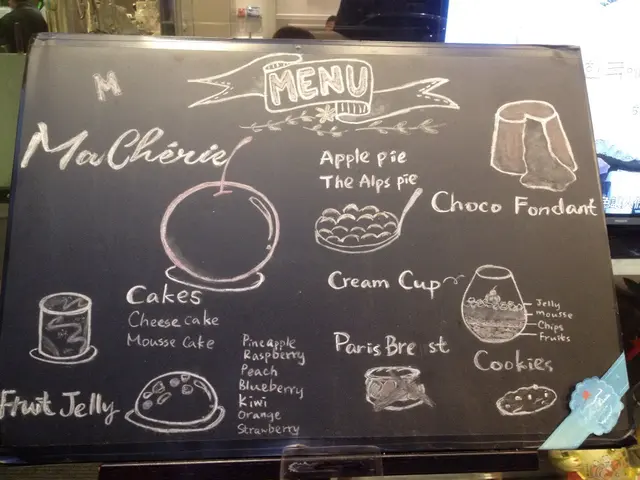 M
MENU
Ma Chérie
Apple pie
The Alps pie
Choco Fondant
Cream Cup
Jelly
mousse
Chips
fruits
Cakes
Cheese cake
Mousse Cake
Paris Bre st
Cookies
Fruit Jelly
Pineapple
Raspberry
Peach
Blueberry
Kiwi
Orange
Strawberry